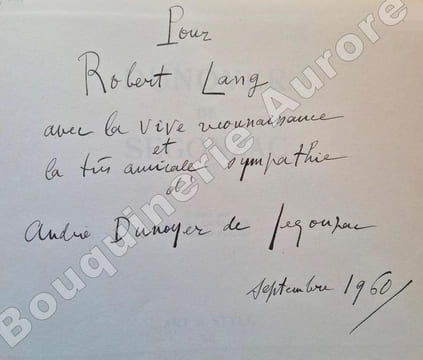 Pour
Robert Lang
avec la vive reconnaissance
et
la très amicale sympathie
d'
André Dunoyer de Segonzac
septembre 1960
Bouquinerie Aurore
ART & STYLE